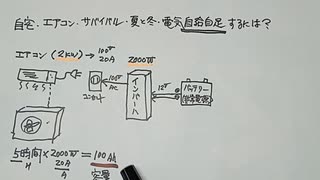 自宅・エアコン・サバイバル・夏と冬・電気自給自足するには?
エアコン(2kW)→100V
20A
2000W
コンセント
100V
AC
インバータ
12V
バッテリー
5時間×2000W=100Ah
H
20A
A
容量